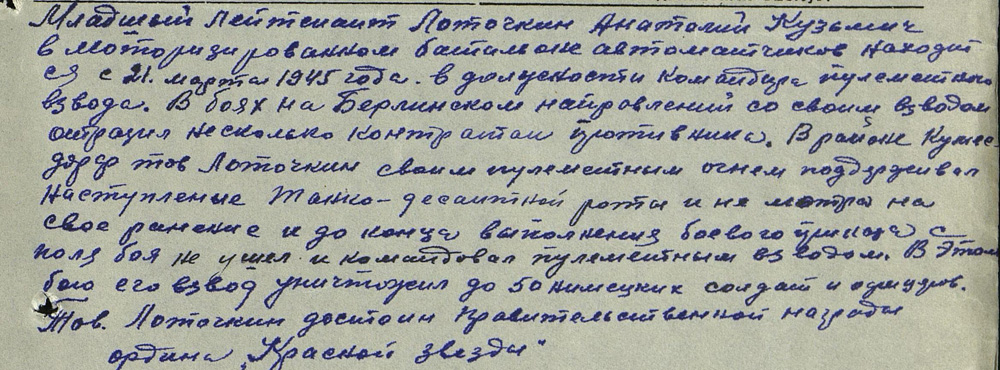 Младший Лейтенант Лоточкин Анатолий Кузьмич
в моторизированном батальоне автоматчиков находит
ся с 21. марта 1945 года. в должности командира пулеметного
взвода. В боях на Берлинском направлений со своим взводом
отразил несколько контратак противника. В районе Кумес
дорф тов Лоточкин своим пулеметным огнем поддерживал
наступление Танко-десантной роты и не мотря на
свое ранение и до конца выполнения боевого приказа с
поля боя не ушел и командовал пулеметным взводом. В этом
бою его взвод уничтожил до 50 нимецких солдат и офицеров.
Тов. Лоточкин достоин Правительственной награды
ордина „Краской звезды"